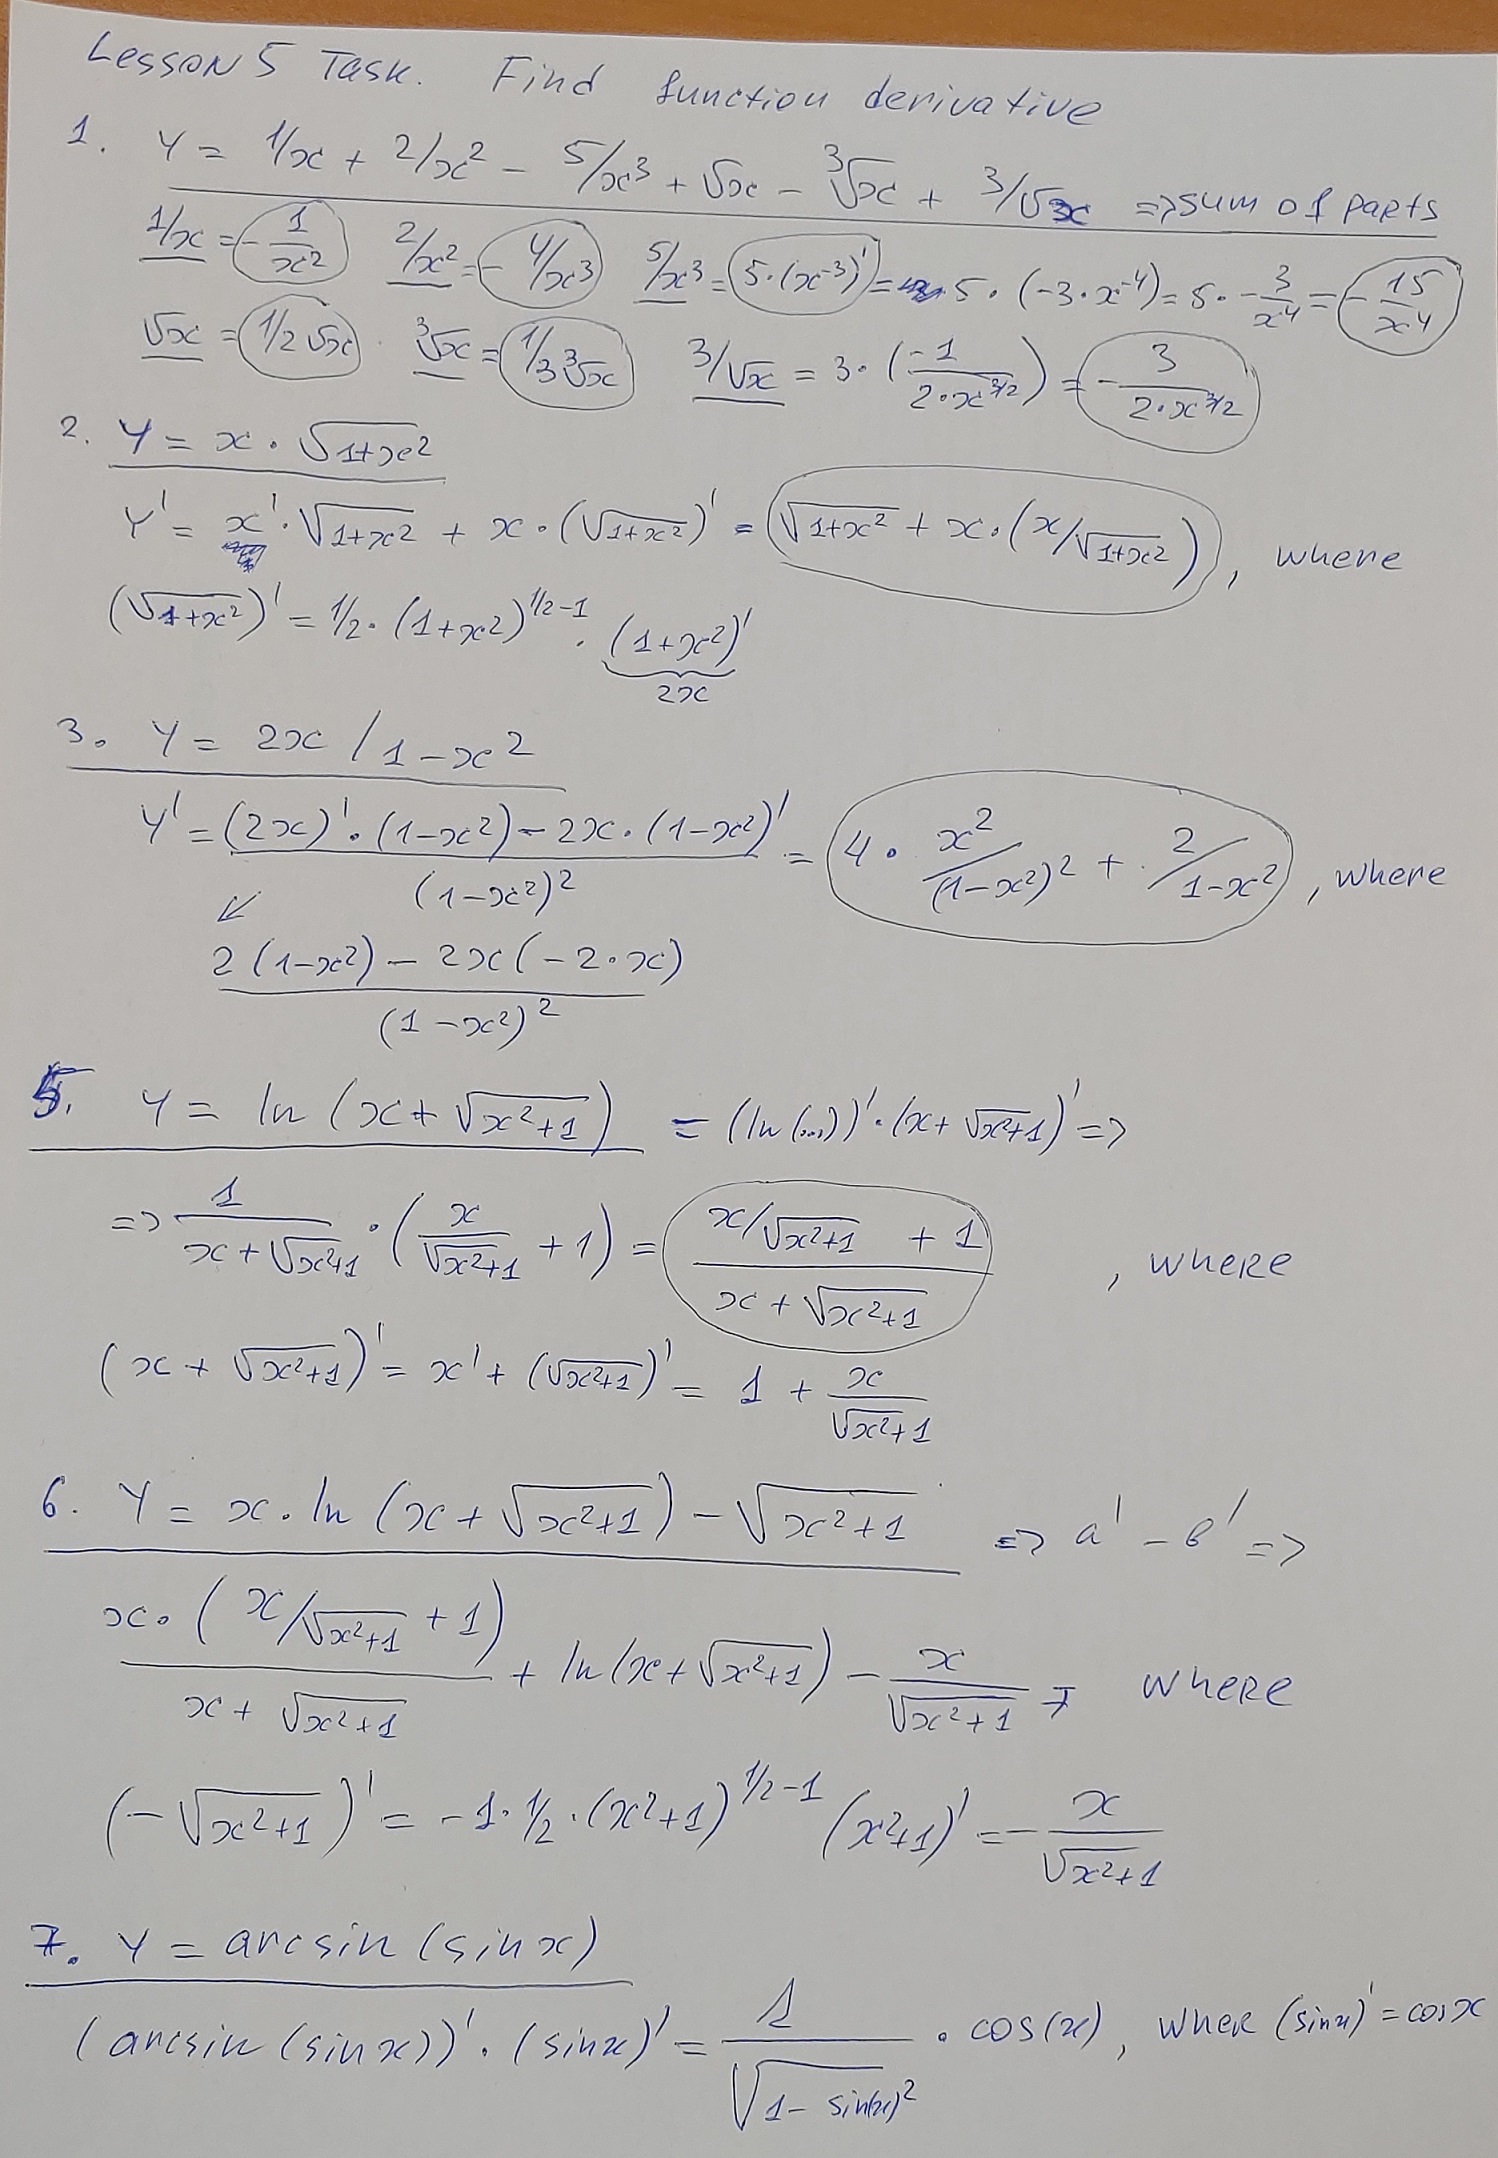 Lesson 5 Task. Find function derivative
1. Y = 1/x + 2/x² - 5/x³ + √x - ³√x + 3/√x => sum of parts
1/x = -1/x² 2/x² = -4/x³ 5/x³ = 5·(x⁻³)' = 5·(-3·x⁻⁴) = 5·-3/x⁴ = -15/x⁴
√x = 1/2√x · ³√x = 1/3³√x 3/√x = 3·(-1/2·x^3/2) = -3/2·x^3/2
2. Y = x·√1+x²
Y' = x'·√1+x² + x·(√1+x²)' = √1+x² + x·(x/√1+x²), where
(√1+x²)' = 1/2·(1+x²)^1/2-1 · (1+x²)'
2x
3. Y = 2x / 1-x²
Y' = (2x)'·(1-x²) - 2x·(1-x²)' / (1-x²)² = 4·x²/(1-x²)² + 2/1-x², where
↙
2(1-x²) - 2x(-2·x) / (1-x²)²
5. Y = ln(x+√x²+1) = (ln(...))'·(x+√x²+1)' =>
=> 1/x+√x²+1 · (x/√x²+1 + 1) = x/√x²+1 + 1 / x+√x²+1, where
(x+√x²+1)' = x' + (√x²+1)' = 1 + x/√x²+1
6. Y = x·ln(x+√x²+1) - √x²+1 => a' - b' =>
x·(x/√x²+1 + 1) / x+√x²+1 + ln(x+√x²+1) - x/√x²+1, where
(-√x²+1)' = -1·1/2·(x²+1)^1/2-1 (x²+1)' = -x/√x²+1
7. Y = arcsin(sinx)
(arcsin(sinx))'·(sinx)' = 1/√1-sin(x)² · cos(x), where (sinx)' = cosx